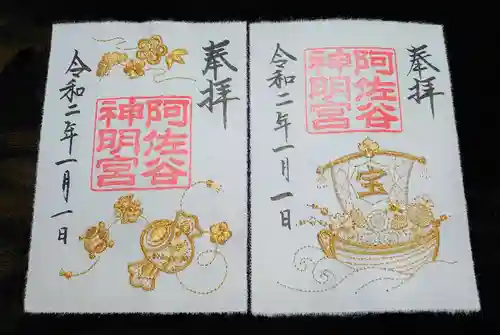 奉拝
阿佐谷
神明宮
令和二年一月一日
奉拝
阿佐谷
神明宮
宝
令和二年一月一日